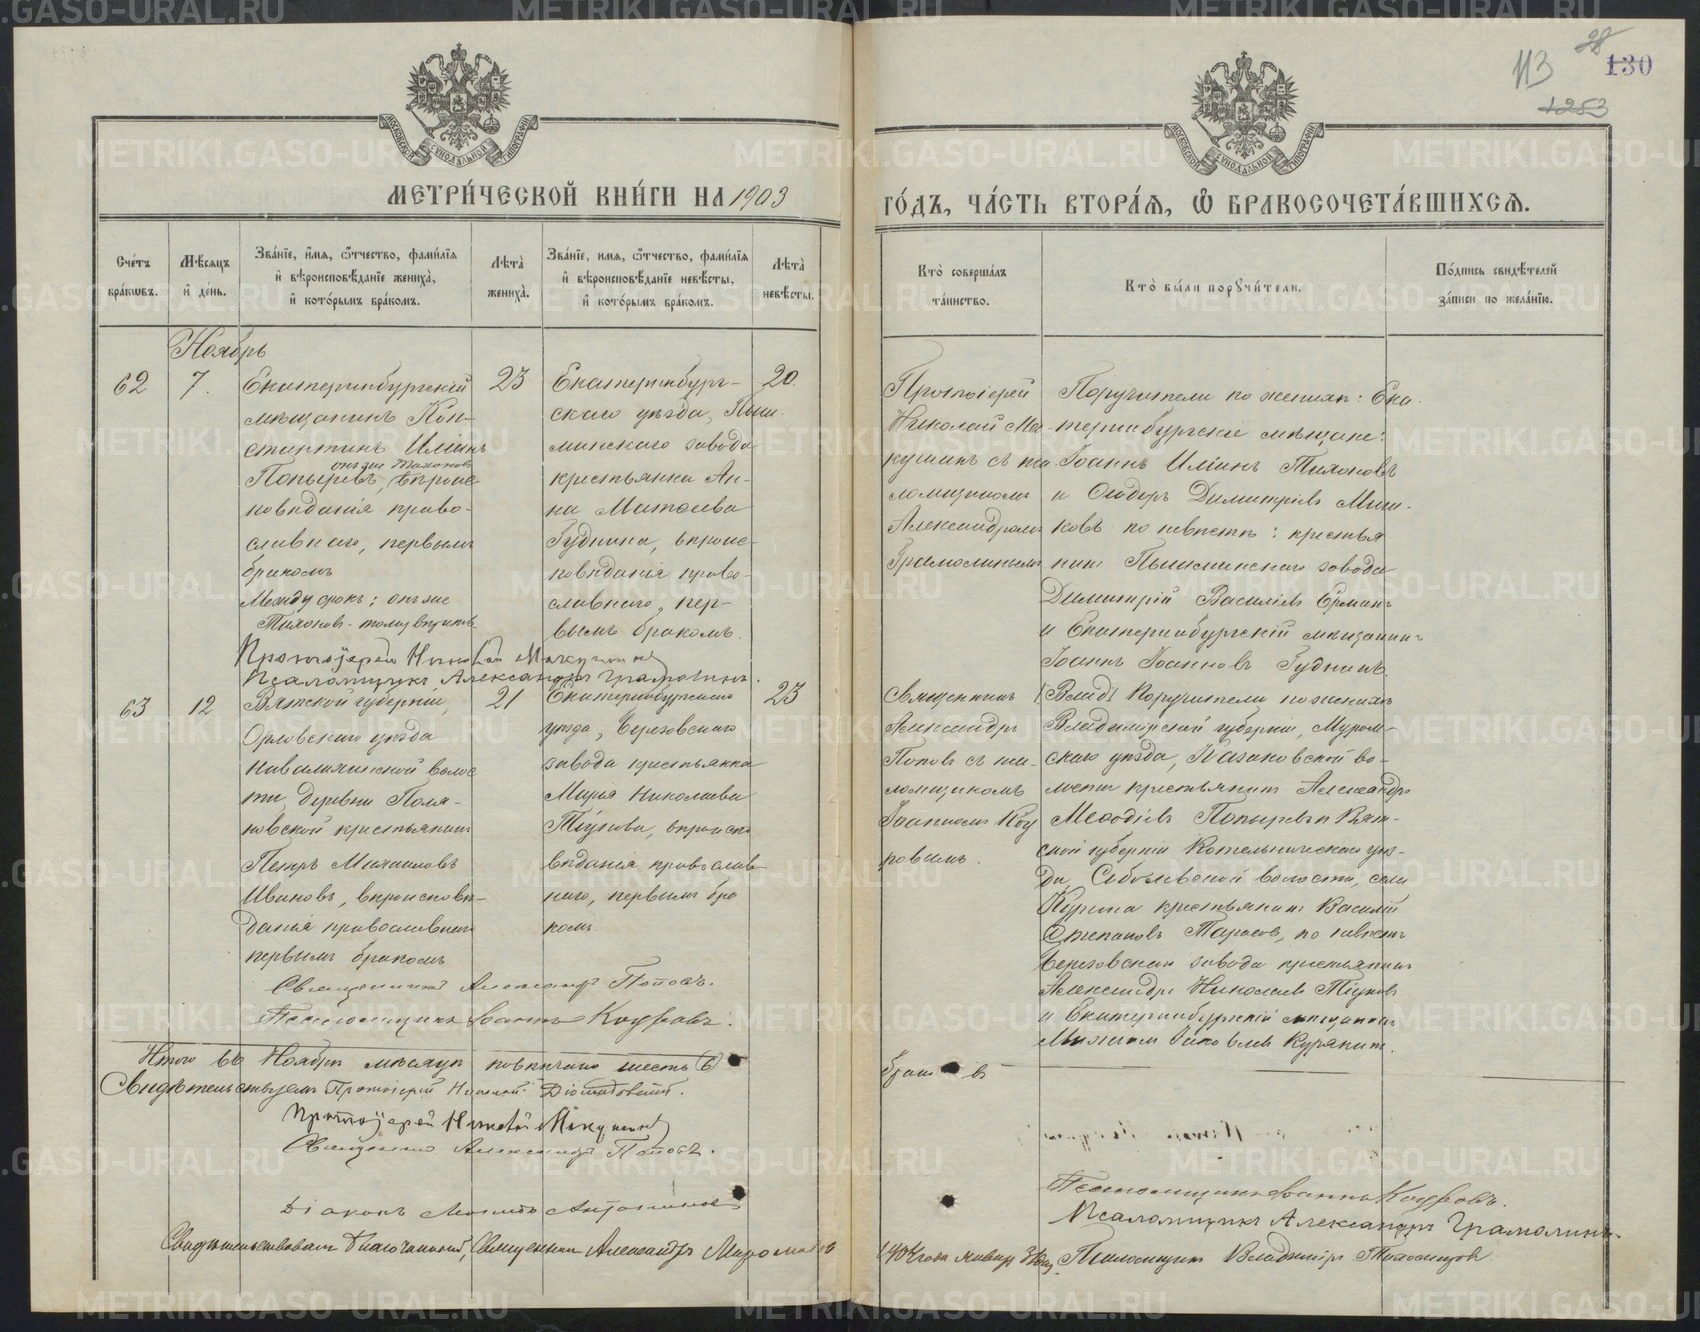 113
28
130
1253
МОСКОВСКОЙ СУНОДАЛЬНОЙ ТИПОГРАФІИ
МОСКОВСКОЙ СУНОДАЛЬНОЙ ТИПОГРАФІИ
МЕТРИ́ЧЕСКОЙ КНИ́ГИ НА 1903
ГО́ДЪ, ЧА́СТЬ ВТОРА́Я, Ѡ҆ БРАКОСОЧЕТА́ВШИХСЯ.
Сче́тъ бра́кѡвъ.
Мѣ́сяцъ и҆ де́нь.
Зва́нїе, и҆́мя, ѻ҆́тчество, фами́лїя
и҆ вѣроисповѣ́данїе жениха̀,
и҆ кото́рымъ бра́комъ.
Лѣта̀ жениха̀.
Зва́нїе, и҆́мя, ѻ҆́тчество, фами́лїя
и҆ вѣроисповѣ́данїе невѣ́сты,
и҆ кото́рымъ бра́комъ.
Лѣта̀ невѣ́сты.
Кто̀ соверша́лъ та́инство.
Кто̀ бы́ли порꙋчи́тели.
По́дпись свидѣ́телей за́писи по жела́нїю.
Ноябрь
62
7.
Екатеринбургскій
мѣщанинъ Кон-
стантинъ Иліинъ
онъ же Тихоновъ
Попыревъ, вѣроис-
повѣданія право-
славнаго, первымъ
бракомъ
Между срокъ: онъ же
Тихоновъ - тому вѣрить
23
Екатеринбург-
скаго уѣзда, Пыш-
минскаго завода
крестьянка Ан-
на Матѳеева
Гуднина, вѣроис-
повѣданія право-
славнаго, пер-
вымъ бракомъ.
20.
Протоіерей
Николай Ма-
кушинъ съ пса-
ломщикомъ
Александромъ
Грамолинымъ
Поручители по женихѣ: Ека-
теринбургскіе мѣщане:
Іоаннъ Иліинъ Тихоновъ
и Ѳеодоръ Димитріевъ Мыш-
ковъ по невѣстѣ: крестья
нинъ Пышминскаго завода
Димитрій Василіевъ Ерминъ
и Екатеринбургскій мѣщанинъ
Іоаннъ Іоанновъ Гуднинъ.
Протоіерей Николай Макушинъ
Псаломщикъ Александръ Грамолинъ.
63
12
Вятской губерніи,
Орловскаго уѣзда
волос
ти, деревни Поля-
новской крестьянинъ
Петръ Михаиловъ
Ивановъ, вѣроисповѣ-
данія православнаго
первымъ бракомъ
21
Екатеринбургскаго
уѣзда, Березовскаго
завода крестьянка
Марія Николаева
Тіунова, вѣроиспо
вѣданія православ
наго, первымъ бра
комъ
23
Священникъ
Александръ
Поповъ съ пса-
ломщикомъ
Іоанномъ Коу
ровымъ.
Поручители по женихѣ
Владимірской губерніи, Муром-
скаго уѣзда, Казаковской во-
лости крестьянинъ Александръ
Меѳодіевъ Попыревъ и Вят-
ской губерніи Котельническаго уѣз-
да, волости, села
Курина крестьянинъ Василій
Степановъ Тарасов, по невѣстѣ
Березовскаго завода крестьянинъ
Александръ Николаевъ Тіуновъ
и Екатеринбургскій мѣщанинъ
Михаилъ Іаковлевъ Курянинъ.
Священникъ Александръ Поповъ.
Псаломщикъ Іоаннъ Коуровъ.
Итого въ Ноябрѣ мѣсяцѣ повѣнчано шесть (6)
браковъ
Свидѣтельствуемъ Протоіерей Николай Діомидовскій.
Протоіерей Николай Макушинъ
Священникъ Александръ Поповъ.
Діаконъ
Псаломщикъ Іоаннъ Коуровъ.
Псаломщикъ Александръ Грамолинъ.
Свидѣтельствовалъ Благочинный, Священникъ Александръ
1904 года январ
Псаломщикъ Владиміръ
METRIKI.GASO-URAL.RU